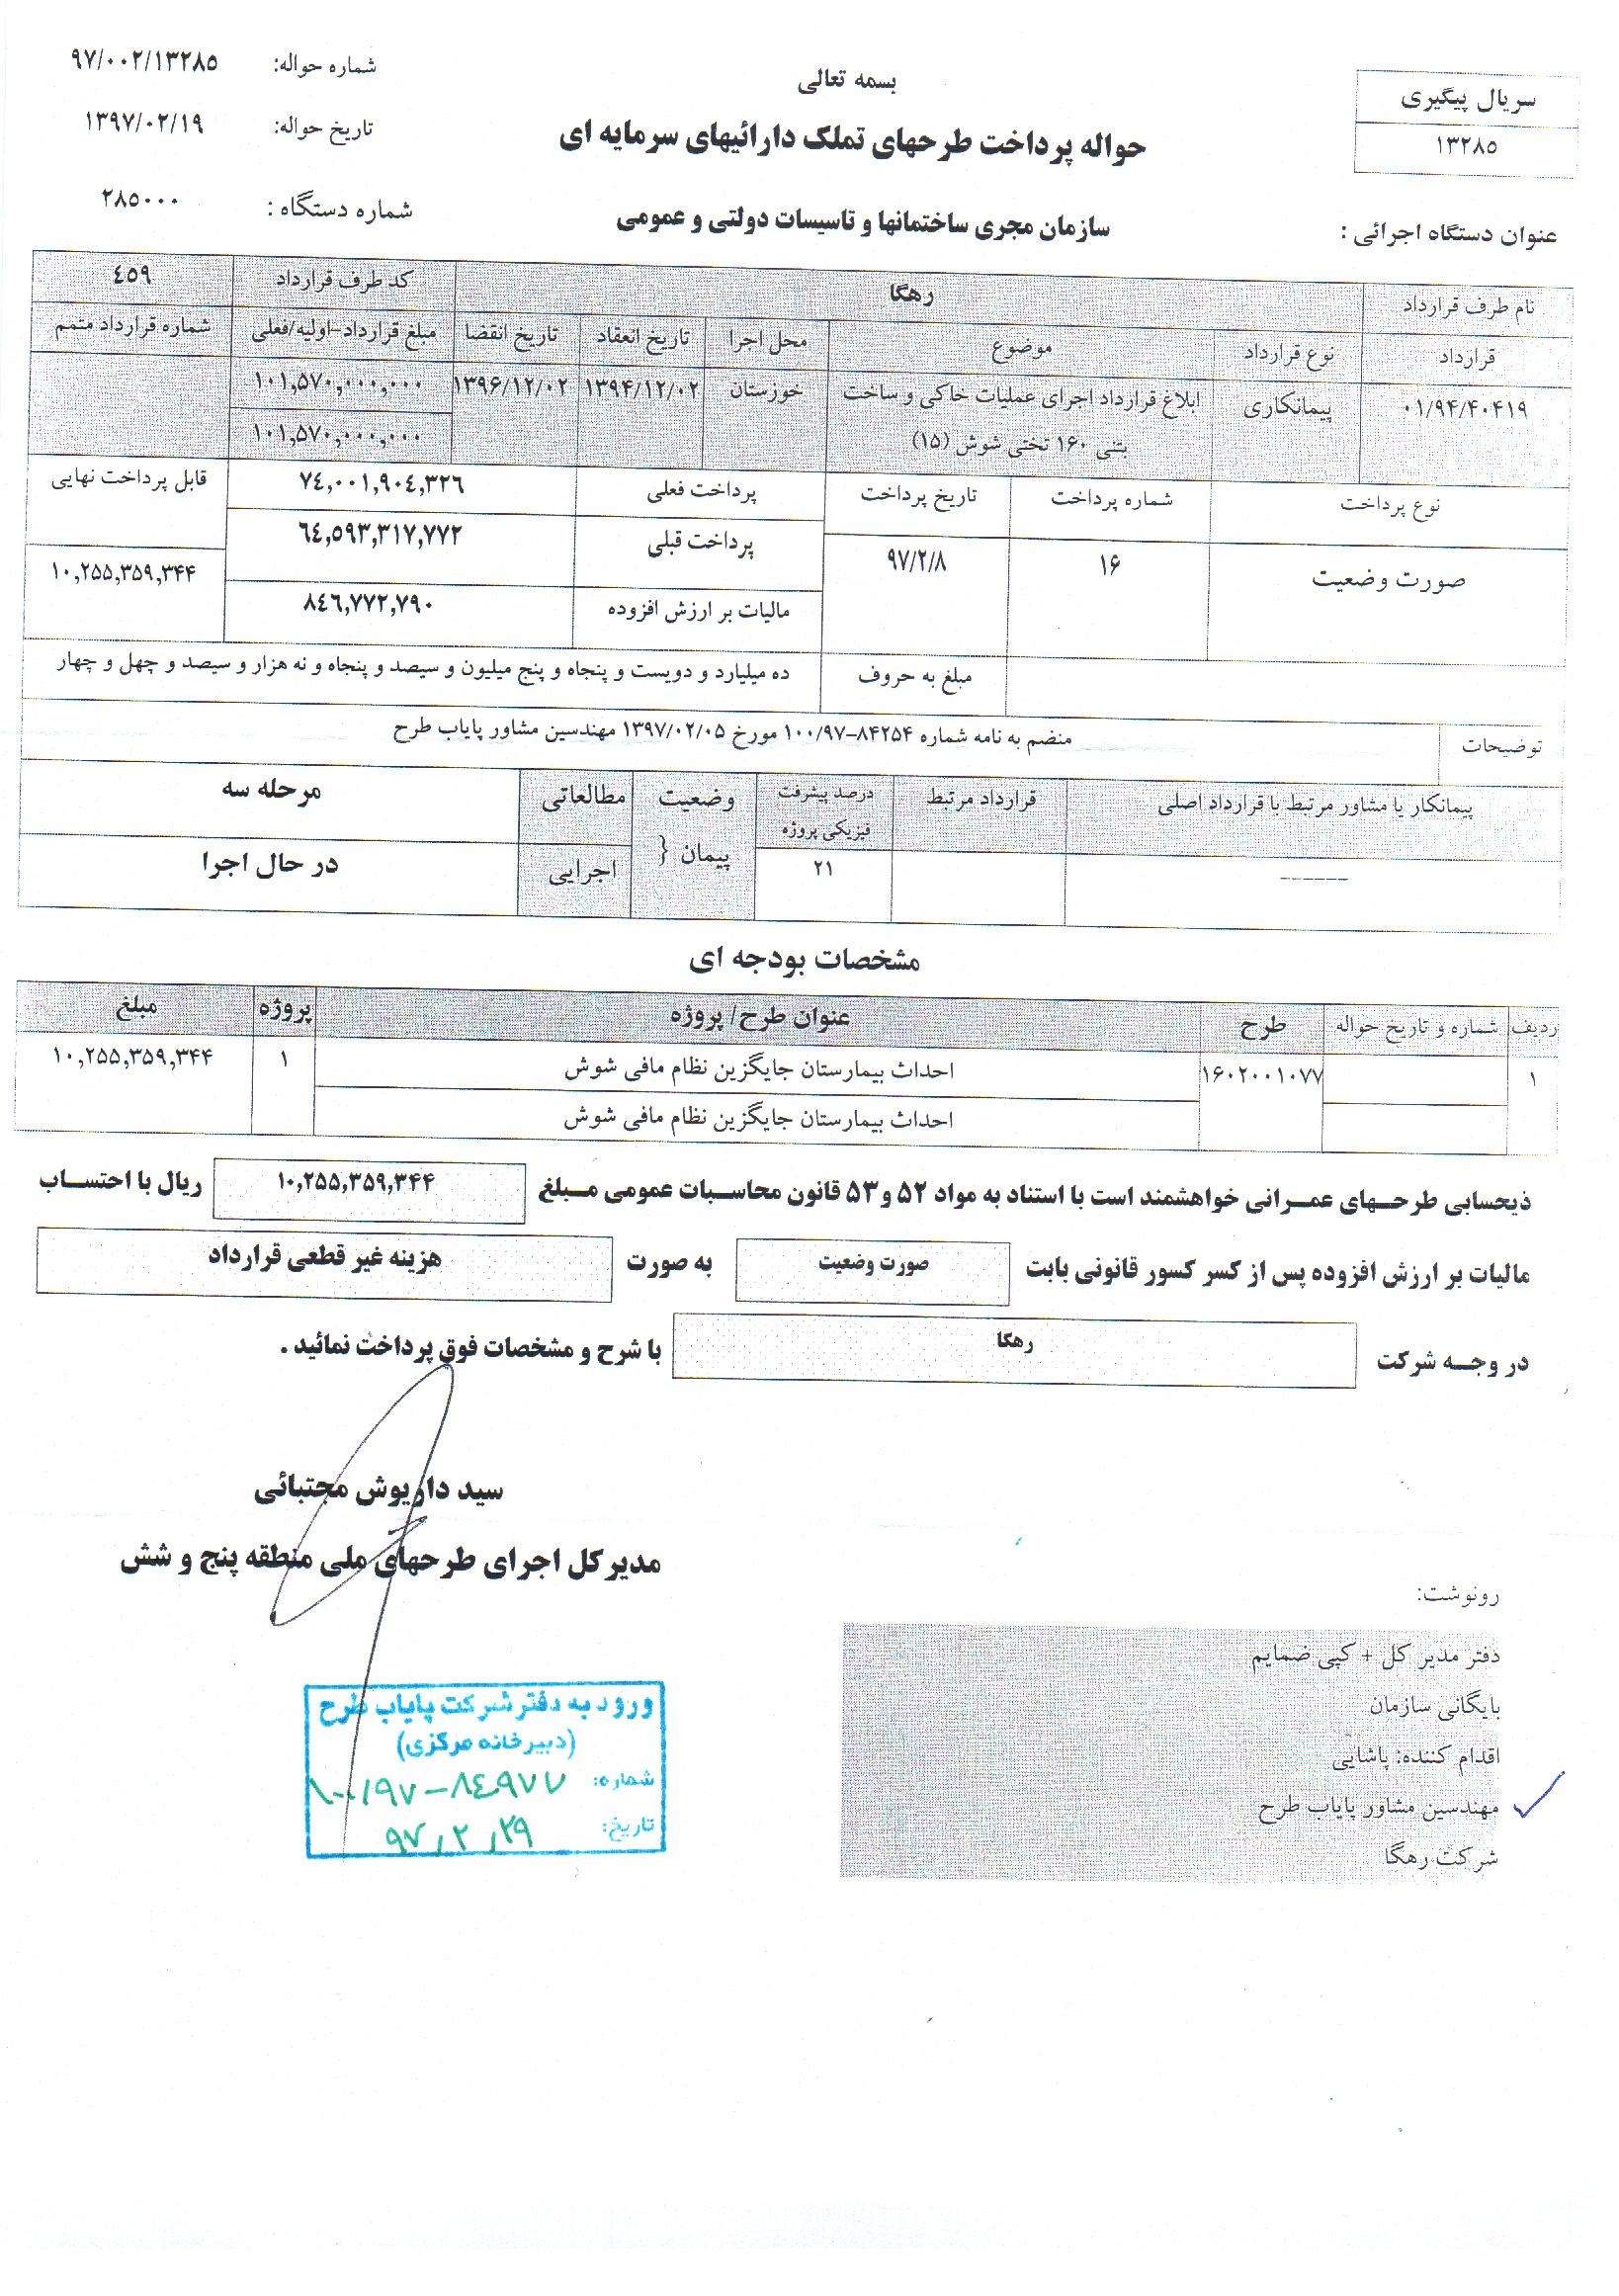 بسمه تعالی
حواله پرداخت طرحهای تملک دارائیهای سرمایه ای
سریال پیگیری
۱۳۲۸۵
شماره حواله: ۹۷/۰۰۲/۱۳۲۸۵
تاریخ حواله: ۱۳۹۷/۰۲/۱۹
عنوان دستگاه اجرائی : سازمان مجری ساختمانها و تاسیسات دولتی و عمومی شماره دستگاه : ۲۸۵۰۰۰
نام طرف قرارداد رهگا کد طرف قرارداد ٤٥٩
قرارداد نوع قرارداد موضوع محل اجرا تاریخ انعقاد تاریخ انقضا مبلغ قرارداد-اولیه/فعلی شماره قرارداد متمم
۰۱/۹۴/۴۰۴۱۹ پیمانکاری ابلاغ قرارداد اجرای عملیات خاکی و ساخت خوزستان ۱۳۹۴/۱۲/۰۲ ۱۳۹۶/۱۲/۰۲ ۱۰۱,۵۷۰,۰۰۰,۰۰۰
بتنی ۱۶۰ تختی شوش (۱۵) ۱۰۱,۵۷۰,۰۰۰,۰۰۰
نوع پرداخت شماره پرداخت تاریخ پرداخت پرداخت فعلی ۷٤,۰۰۱,۹۰٤,۳۲٦ قابل پرداخت نهایی
صورت وضعیت ۱۶ ۹۷/۲/۸ پرداخت قبلی ٦٤,٥۹۳,۳۱۷,۷۷۲ ۱۰,۲۵۵,۳۵۹,۳۴۴
مالیات بر ارزش افزوده ۸٤٦,۷۷۲,۷۹۰
مبلغ به حروف ده میلیارد و دویست و پنجاه و پنج میلیون و سیصد و پنجاه و نه هزار و سیصد و چهل و چهار
توضیحات منضم به نامه شماره ۸۴۲۵۴-۱۰۰/۹۷ مورخ ۱۳۹۷/۰۲/۰۵ مهندسین مشاور پایاب طرح
پیمانکار یا مشاور مرتبط با قرارداد اصلی قرارداد مرتبط درصد پیشرفت فیزیکی پروژه وضعیت پیمان { مطالعاتی مرحله سه
------ ۲۱ اجرایی در حال اجرا
مشخصات بودجه ای
ردیف شماره و تاریخ حواله طرح عنوان طرح/ پروژه پروژه مبلغ
۱ ۱۶۰۲۰۰۱۰۷۷ احداث بیمارستان جایگزین نظام مافی شوش ۱ ۱۰,۲۵۵,۳۵۹,۳۴۴
احداث بیمارستان جایگزین نظام مافی شوش
ذیحسابی طرحهای عمرانی خواهشمند است با استناد به مواد ۵۲ و ۵۳ قانون محاسبات عمومی مبلغ ۱۰,۲۵۵,۳۵۹,۳۴۴ ریال با احتساب
مالیات بر ارزش افزوده پس از کسر کسور قانونی بابت صورت وضعیت به صورت هزینه غیر قطعی قرارداد
در وجه شرکت رهگا با شرح و مشخصات فوق پرداخت نمائید .
سید داریوش مجتبائی
مدیرکل اجرای طرحهای ملی منطقه پنج و شش
رونوشت:
دفتر مدیر کل + کپی ضمایم
بایگانی سازمان
اقدام کننده: پاشایی
مهندسین مشاور پایاب طرح
شرکت رهگا
ورود به دفتر شرکت پایاب طرح
(دبیرخانه مرکزی)
شماره: ۱۰۰/۹۷-۸٤۹۷۷
تاریخ: ۹۷/۲/۲۹